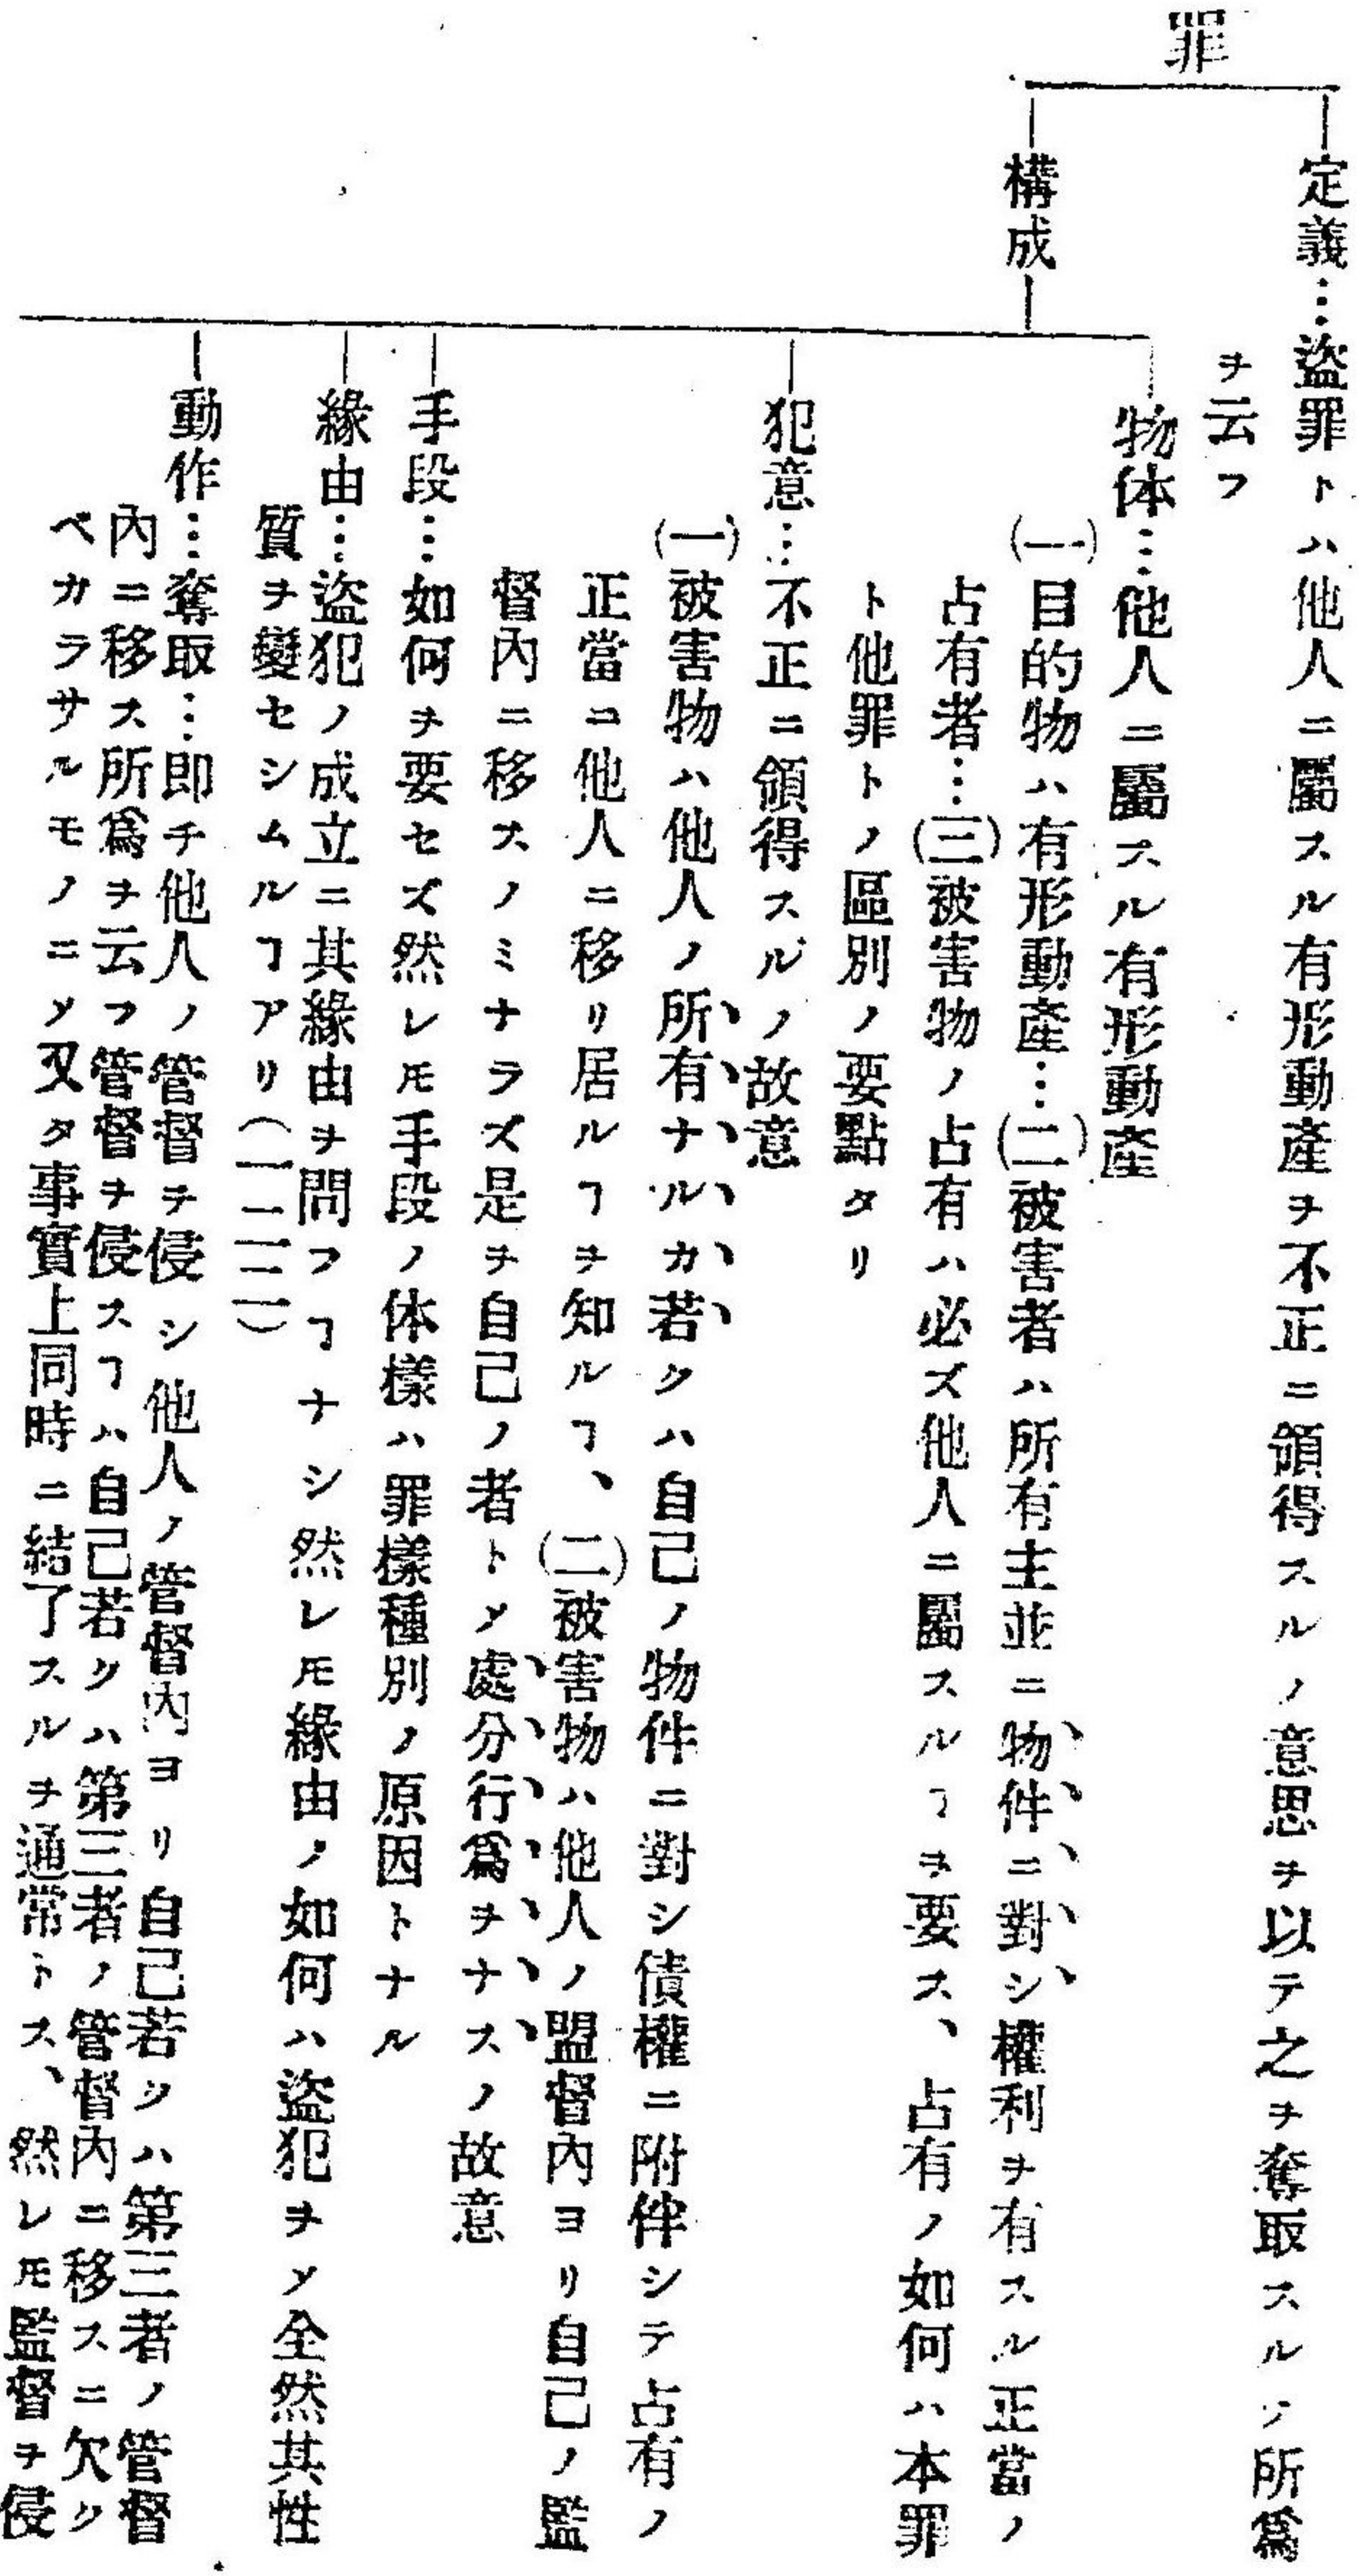 罪
定義…盜罪トハ他人ニ屬スル有形動產ヲ不正ニ領得スルノ意思ヲ以テ之ヲ奪取スルノ所爲
ヲ云フ
構成
物体…他人ニ屬スル有形動產
(一)目的物ハ有形動產…(二)被害者ハ所有主並ニ物件ニ對シ權利ヲ有スル正當ノ
占有者…(三)被害物ノ占有ハ必ズ他人ニ屬スルヿヲ要ス、占有ノ如何ハ本罪
ト他罪トノ區別ノ要點タリ
犯意…不正ニ領得スルノ故意
(一)被害物ハ他人ノ所有ナルカ若クハ自己ノ物件ニ對シ債權ニ附伴シテ占有ノ
正當ニ他人ニ移リ居ルヿヲ知ルヿ、(二)被害物ハ他人ノ盟督內ヨリ自己ノ監
督內ニ移スノミナラズ是ヲ自己ノ者トメ處分行爲ヲナスノ故意
手段…如何ヲ要セズ然レ𪜈手段ノ体樣ハ罪樣種別ノ原因トナル
緣由…盜犯ノ成立ニ其緣由ヲ問フヿナシ然レ𪜈緣由ノ如何ハ盜犯ヲメ全然其性
質ヲ變セシムルヿアリ(一二二一)
動作…奪取…即チ他人ノ管督ヲ侵シ他人ノ管督內ヨリ自己若クハ第三者ノ管督
內ニ移ス所爲ヲ云フ管督ヲ侵スヿハ自己若クハ第三者ノ管督內ニ移スニ欠ク
ベカラサルモノニメ又タ事實上同時ニ結了スルヲ通常トス、然レ𪜈監督ヲ侵